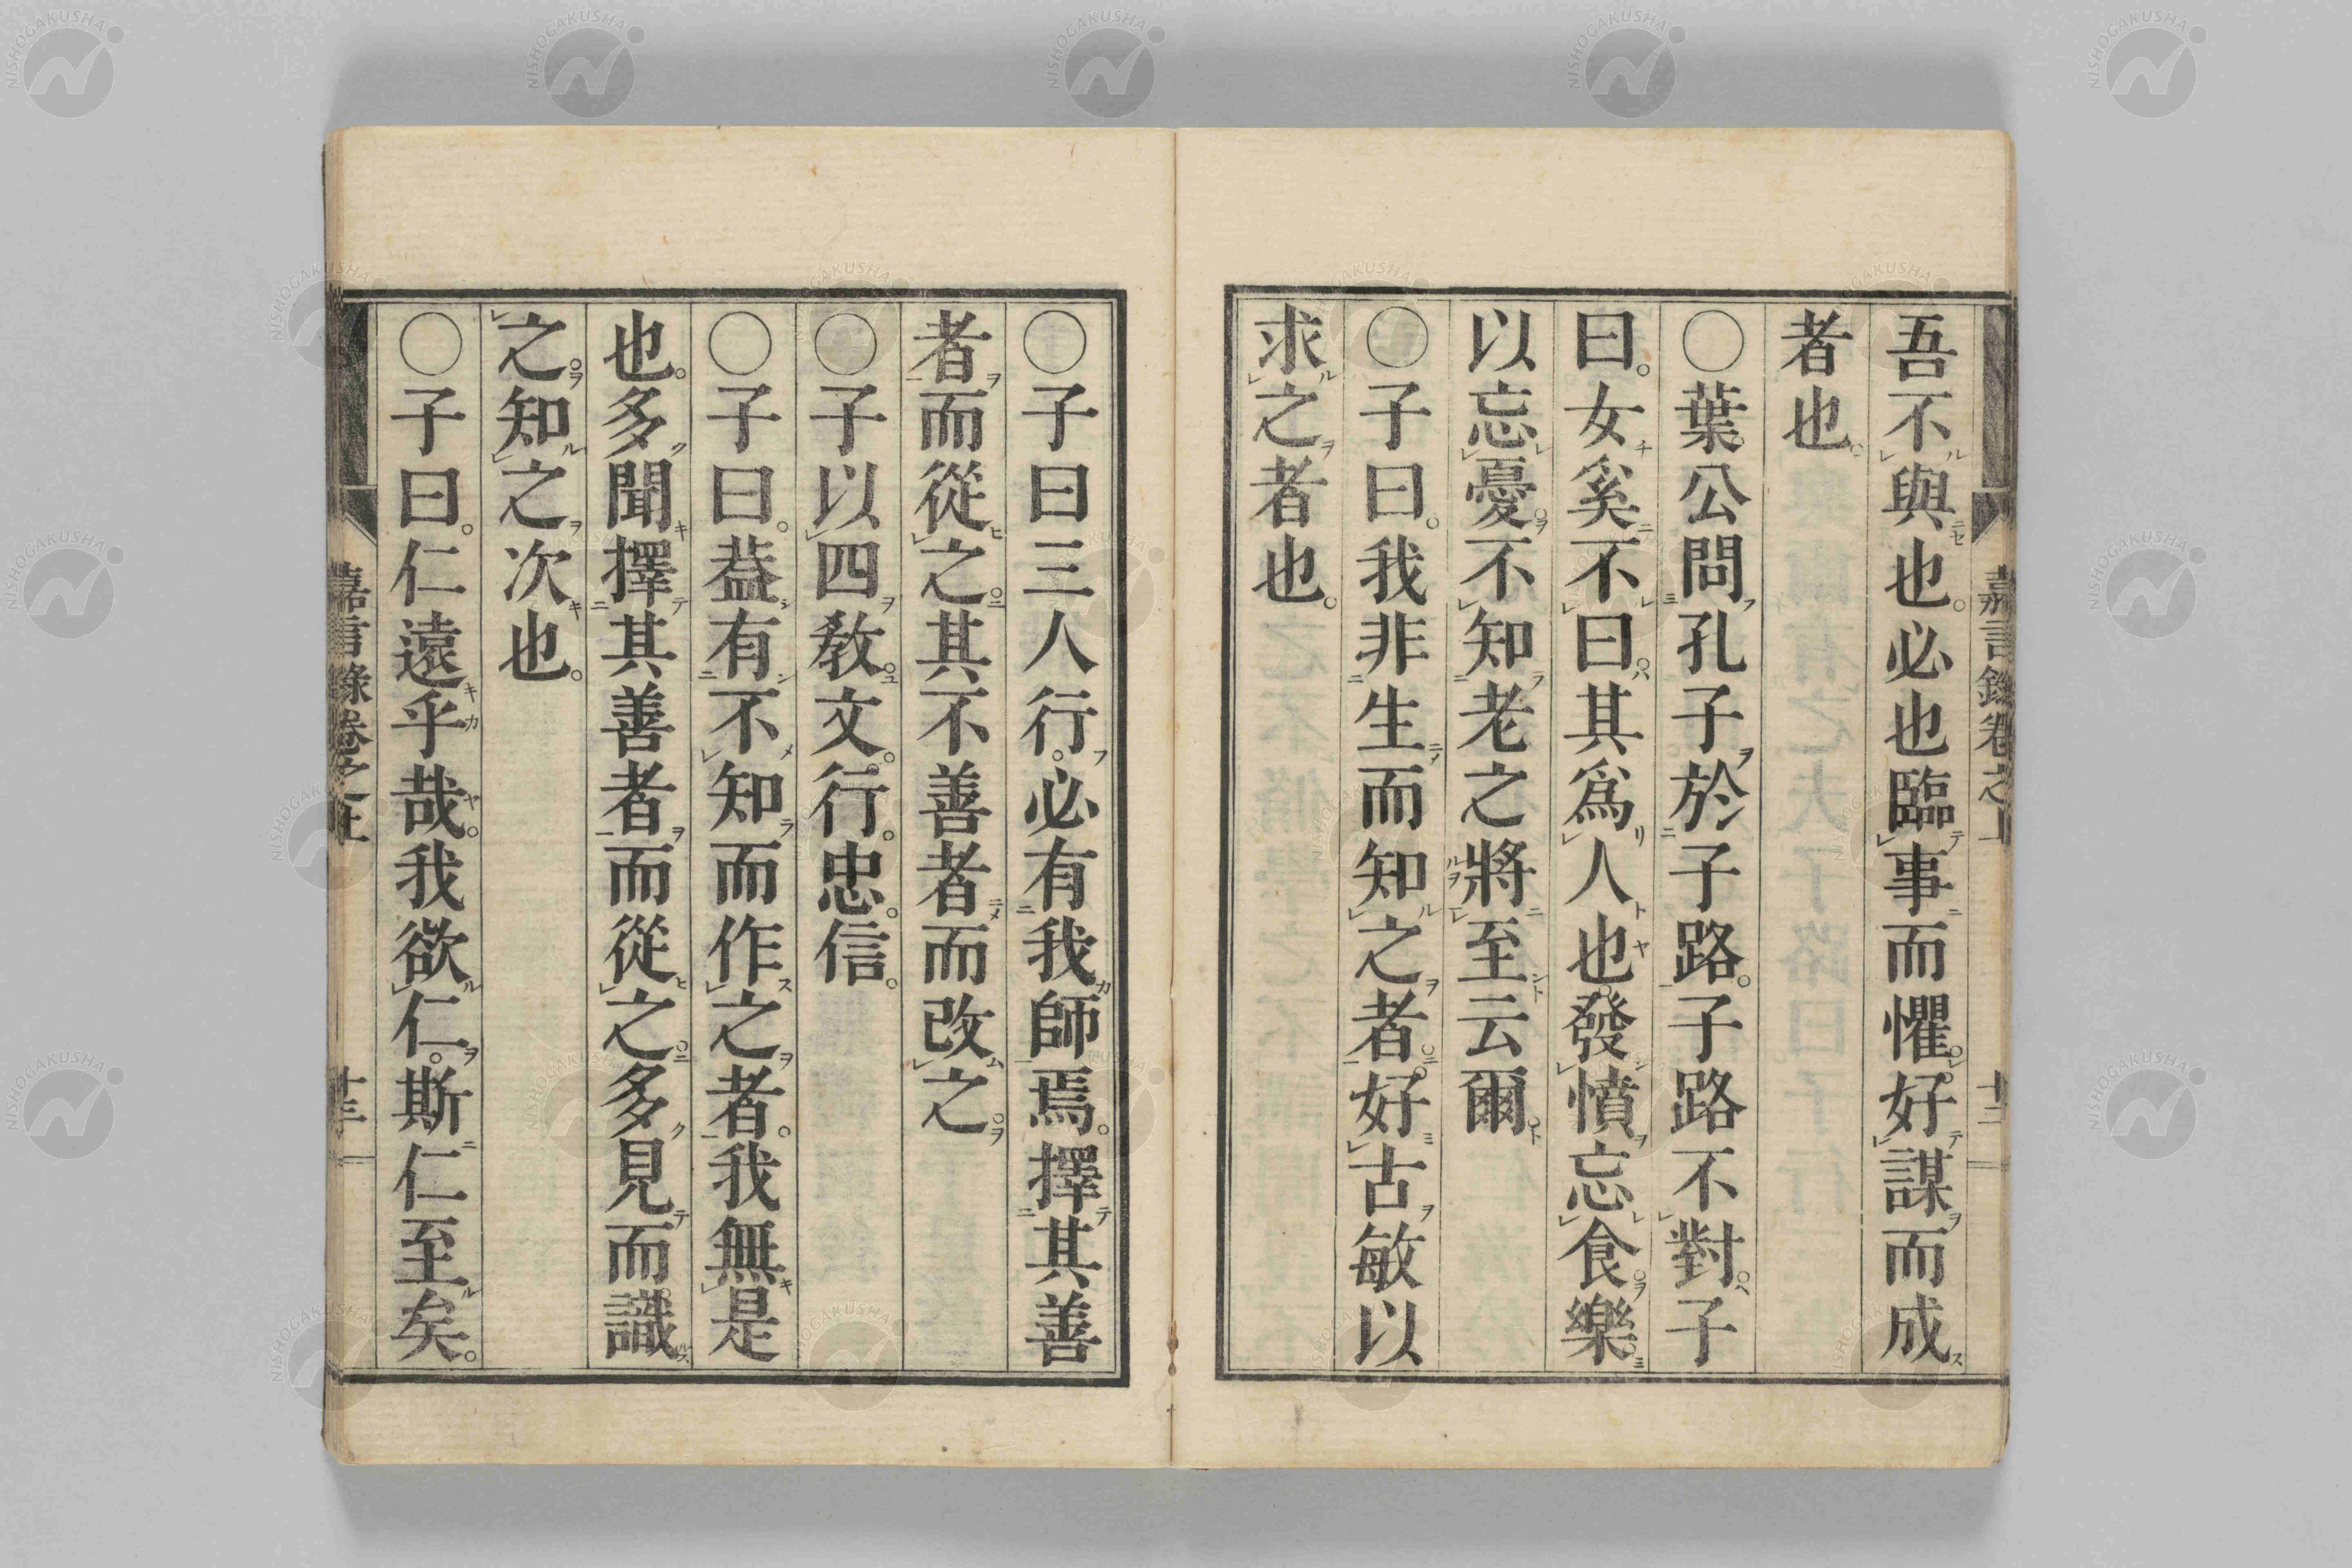 吾不與也。必也臨事而懼。好謀而成
者也。
○葉公問孔子於子路。子路不對。子
曰。女奚不曰。其爲人也。發憤忘食。樂
以忘憂。不知老之將至云爾。
○子曰。我非生而知之者。好古敏以
求之者也。
嘉言錄卷之上
十二
○子曰三人行。必有我師焉。擇其善
者而從之。其不善者而改之。
○子以四敎。文。行。忠。信。
○子曰。葢有不知而作之者。我無是
也。多聞擇其善者而從之。多見而識
之。知之次也。
○子曰。仁遠乎哉。我欲仁。斯仁至矣。
嘉言錄卷之上
十三
NISHOGAKUSHA